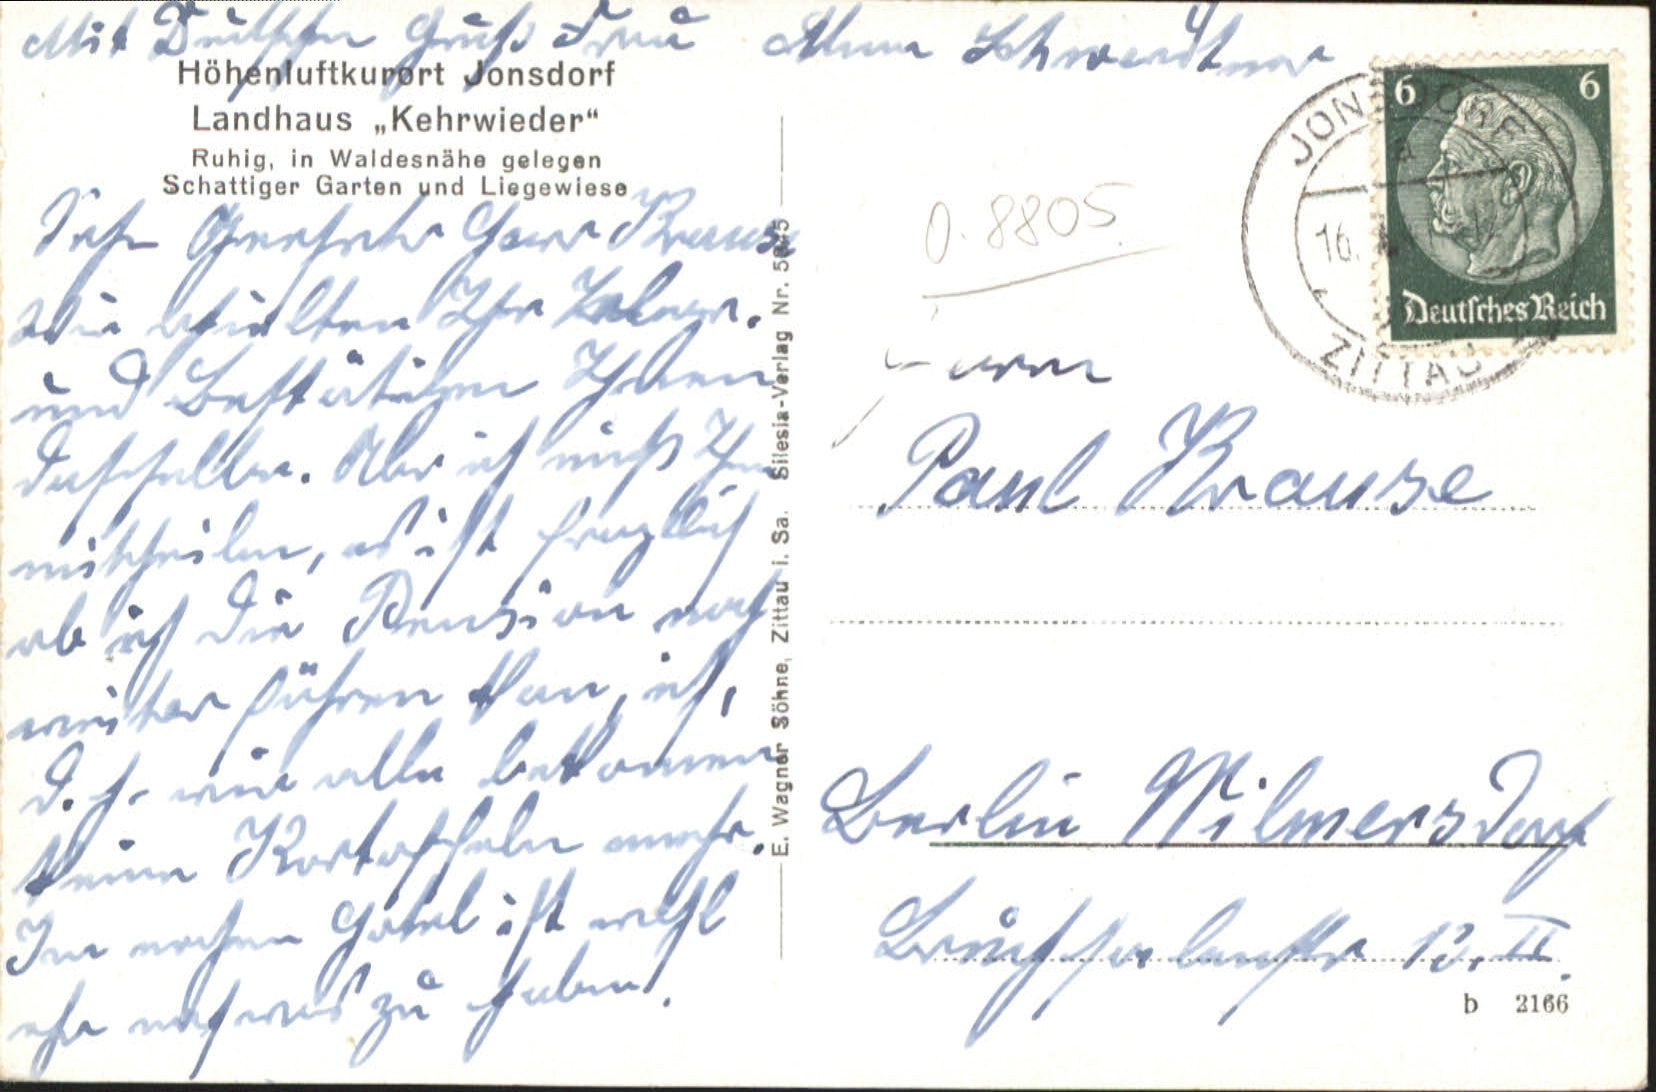 Mit Deutschen Gruß Frau Anna Schwerdtner
Höhenluftkurort Jonsdorf
Landhaus „Kehrwieder“
Ruhig, in Waldesnähe gelegen
Schattiger Garten und Liegewiese
Sehr Geehrter Herr Krause
Wie erhielten Ihr
und Bestätigen Ihnen
dasselbe. Aber ich muß Ihnen
mittheilen, es ist fraglich
ob ich die Pension noch
weiter führen kan, ich,
d. h. wir alle bekomen
keine Kartoffeln mehr.
Im nahen Hotel ist wohl
ehr noch was zu haben.
E. Wagner Söhne, Zittau i. Sa. Silesia-Verlag Nr.
O. 8805
JONSDORF
a
16.
ZITTAU
6 6
Deutsches Reich
Herrn
Paul Krause
Berlin Wilmersdorf
Bruchsalerstr 13. II.
b 2166